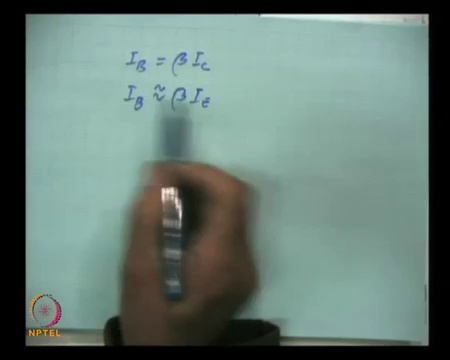 I_B = β I_C
I_B ≈ β I_E
NPTEL